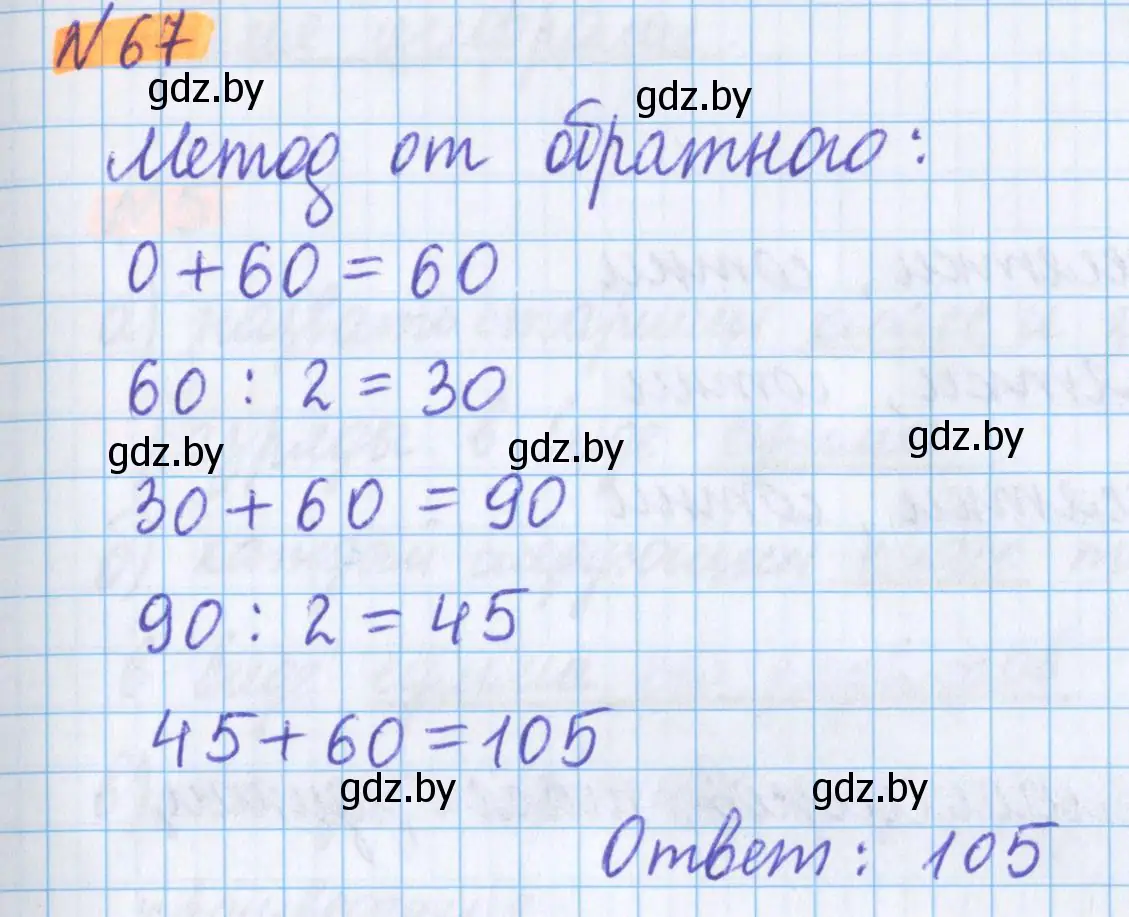 № 67
gdz.by
gdz.by
Метод от обратного:
0 + 60 = 60
60 : 2 = 30
gdz.by gdz.by gdz.by
30 + 60 = 90
90 : 2 = 45
45 + 60 = 105
gdz.by gdz.by
Ответ: 105